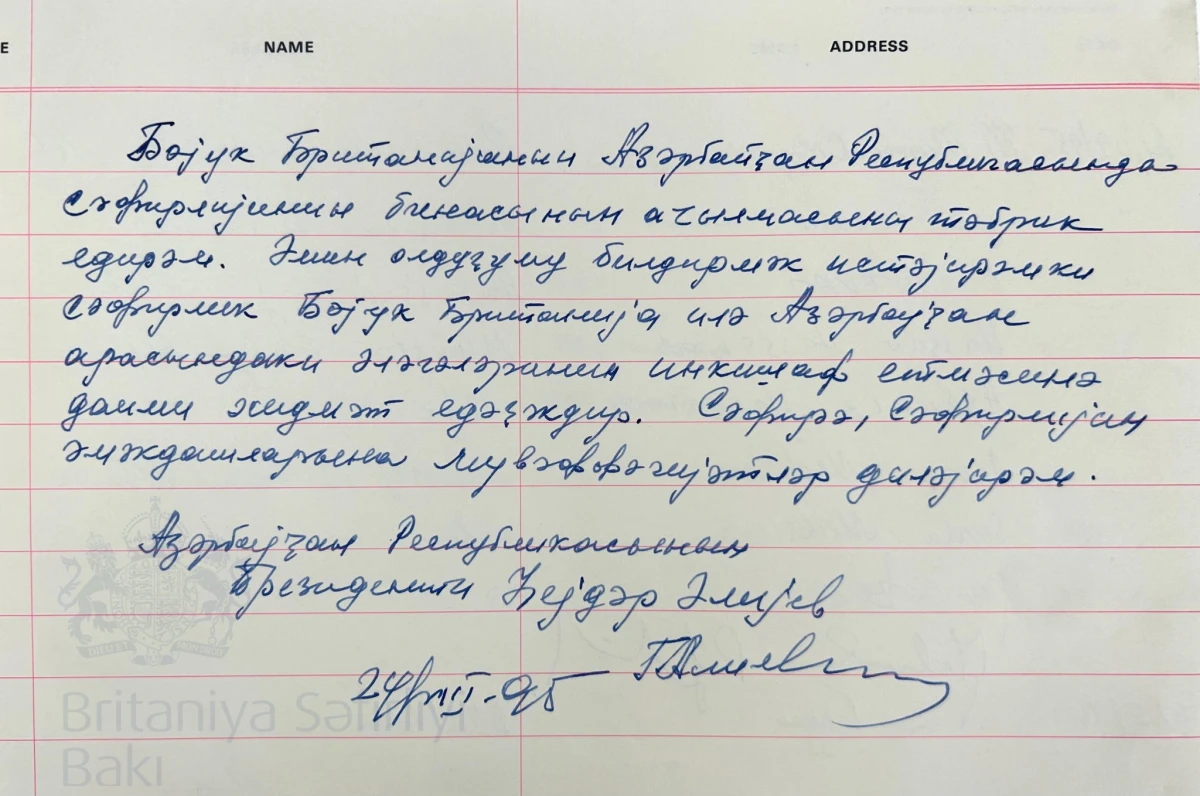 E NAME ADDRESS
Бөјүк Британијанын Азәрбајҹан Республикасында
сәфирлијинин бинасынын ачылмасыны тәбрик
едирәм. Әмин олдуғуму билдирмәк истәјирәмки
сәфирлик Бөјүк Британија илә Азәрбајҹан
арасындаки әлагәләринин инкишаф етмәсинә
даими хидмәт едәҹәкдир. Сәфирә, Сәфирлијин
әмәкдашларына мувәффәгијәтләр диләјирәм.
Азәрбајҹан Республикасынын
Президенти Һејдәр Әлијев
ГАлиев
DIEU ET MON DROIT
Britaniya Səfirliyi
Bakı